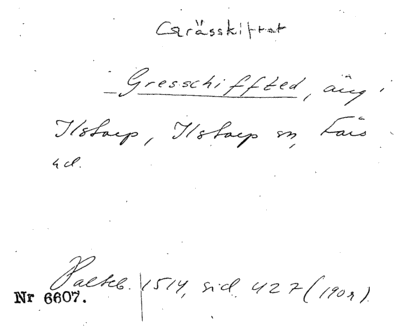 Grässkiftet
Gresschiffted, äng i
Ilstorp, Ilstorp sn, Färs
hd.
Palteb. 1514, sid. 427 (1902)
Nr 6607.